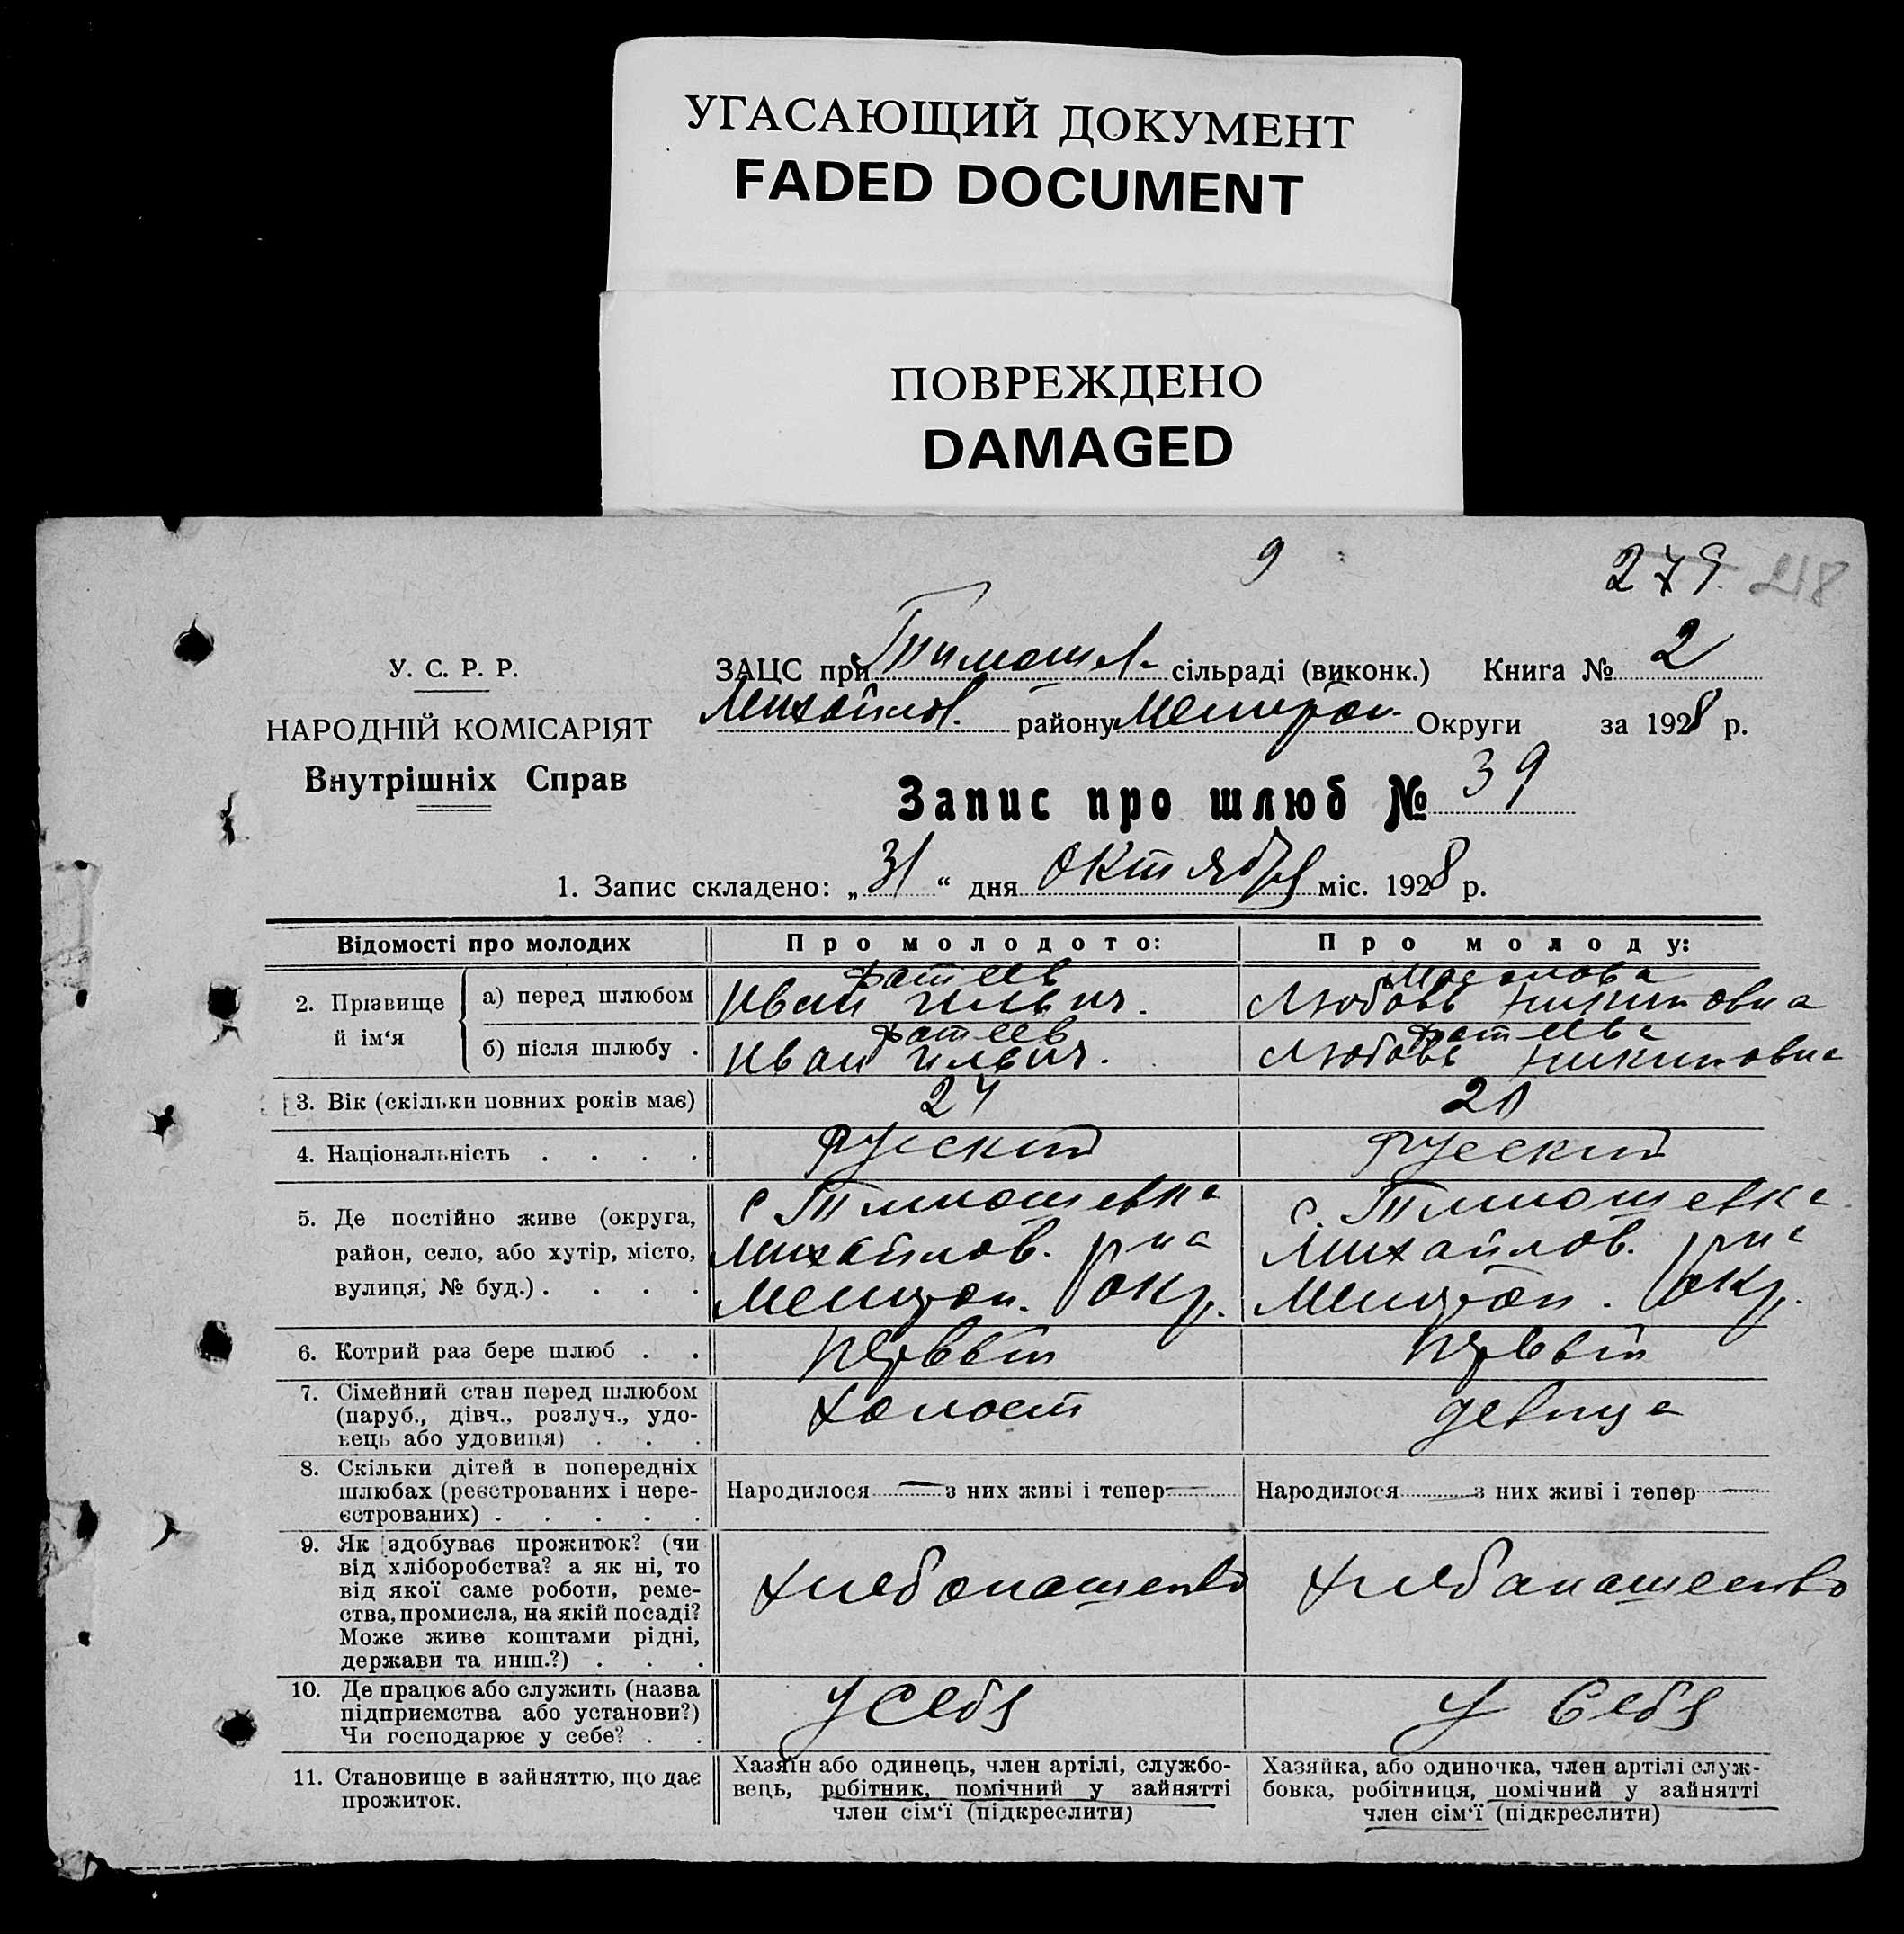 УГАСАЮЩИЙ ДОКУМЕНТ
FADED DOCUMENT
ПОВРЕЖДЕНО
DAMAGED
9
279 218
У. С. Р. Р.
НАРОДНІЙ КОМІСАРІЯТ
Внутрішніх Справ
ЗАЦС при Тимошев. сільраді (виконк.) Книга № 2
Михайлов. району Мелитоп. Округи за 1928 р.
Запис про шлюб № 39
1. Запис складено: „31“ дня Октября міс. 1928 р.
Відомості про молодих
Про молодого:
Про молоду:
2. Прізвище й ім‘я
а) перед шлюбом
Фатеев
Иван Ильич.
Любовь Никитовна
б) після шлюбу .
Фатеев
Иван Ильич.
Фатеева
Любовь Никитовна
3. Вік (скільки повних років має)
24
20
4. Національність . . . .
Руский
Руский
5. Де постійно живе (округа,
район, село, або хутір, місто,
вулиця, № буд.) . . . .
с Тимошевка
Михайлов. р-на
Мелитоп. окр.
с. Тимошевка
Михайлов. р-на
Мелитоп. окр.
6. Котрий раз бере шлюб . .
первый
первый
7. Сімейний стан перед шлюбом
(паруб., дівч., розлуч., удо-
вець або удовиця) . . .
холост
девица
8. Скільки дітей в попередніх
шлюбах (реєстрованих і нере-
єстрованих) . . . . .
Народилося — з них живі і тепер —
Народилося — з них живі і тепер —
9. Як здобуває прожиток? (чи
від хліборобства? а як ні, то
від якої саме роботи, реме-
ства, промисла, на якій посаді?
Може живе коштами рідні,
держави та инш.?) . . .
хлебопашество
хлебапашество
10. Де працює або служить (назва
підприємства або установи?)
Чи господарює у себе? . .
у себя
у себя
11. Становище в зайняттю, що дає
прожиток.
Хазяїн або одинець, член артілі, службо-
вець, робітник, помічний у зайнятті
член сім‘ї (підкреслити)
Хазяйка, або одиночка, член артілі служ-
бовка, робітниця, помічний у зайнятті
член сім‘ї (підкреслити)